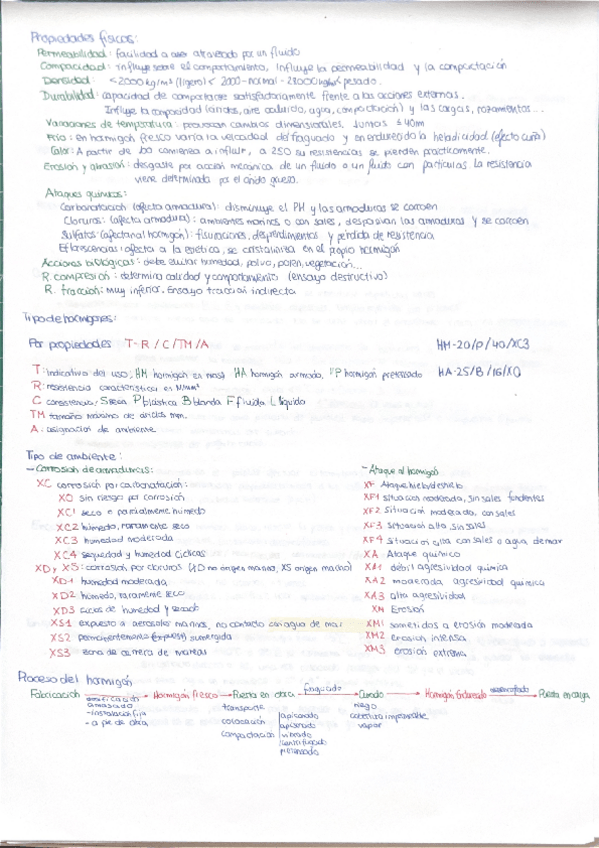 Propiedades físicas:
Permeabilidad: facilidad a ser atravesado por un fluido
Compacidad: influye sobre el comportamiento, influye la permeabilidad y la compactación
Densidad: <2000 kg/m³ (ligero) < 2000-normal-2800 kg/m³ < pesado.
Durabilidad: capacidad de comportarse satisfactoriamente frente a las acciones externas.
Influye la compacidad (áridos, aire ocluido, agua, compactación) y las cargas, rozamientos...
Variaciones de temperatura: provocan cambios dimensionales. Juntas ≤ 40m
Frío: en hormigón fresco varía la velocidad del fraguado y en endurecido la heladicidad (efecto cuña)
Calor: A partir de 100 comienza a influir, a 250 su resistencias se pierden prácticamente.
Erosión y abrasión: desgaste por acción mecánica de un fluido o un fluido con partículas. La resistencia
viene determinada por el árido grueso.
Ataques químicos:
Carbonatación (afecta armadura): disminuye el PH y las armaduras se corroen
Cloruros: (afecta armadura): ambientes marinos o con sales, despasivan las armaduras y se corroen
Sulfatos (afecta al hormigón): fisuraciones, desprendimientos y pérdida de resistencia
Eflorescencias: afecta a la estética, se cristaliniza en el propio hormigón
Acciones biológicas: debe evitar humedad, polvo, polen, vegetación...
R. compresión: determina calidad y comportamiento (ensayo destructivo)
R. tracción: muy inferior. Ensayo tracción indirecta
Tipo de hormigones:
Por propiedades T-R/C/TM/A HM-20/P/40/XC3
T: Indicativo del uso, HM hormigón en masa HA hormigón armado, HP hormigón pretensado HA-25/B/16/XO
R: resistencia característica en N/mm²
C consistencia, Seca Plástica Blanda Fluida Líquida
TM tamaño máximo de áridos mm.
A: asignación de ambiente.
Tipo de ambiente:
- Corrosión de armaduras: - Ataque al hormigón
XC corrosión por carbonatación: XF Ataque hielo/deshielo
XO sin riesgo por corrosión XF1 situación moderada, sin sales fundentes
XC1 seco o parcialmente húmedo XF2 Situación moderada, con sales
XC2 húmedo, raramente seco XF3 Situación alta, sin sales
XC3 humedad moderada XF4 Situación alta con sales o agua de mar
XC4 sequedad y humedad cíclicas XA Ataque químico
XD y XS: corrosión por cloruros (XD no origen marino, XS origen marino) XA1 débil agresividad química
XD1 humedad moderada XA2 moderada agresividad química
XD2 húmedo, raramente seco XA3 alta agresividad
XD3 ciclos de humedad y secado XM Erosión
XS1 expuesto a aerosoles marinos, no contacto con agua de mar XM1 sometidos a erosión moderada
XS2 permanentemente sumergida XM2 erosión intensa
XS3 zona de carrera de mareas XM3 erosión extrema
Proceso del hormigón
Fabricación → Hormigón fresco → Puesta en obra fraguado → Curado → Hormigón endurecido → Puesta en carga
dosificación transporte riego
amasado colocación apisonado cobertura impermeable
- instalación fija compactación vibrado vapor
- a pie de obra centrifugado
pretensado